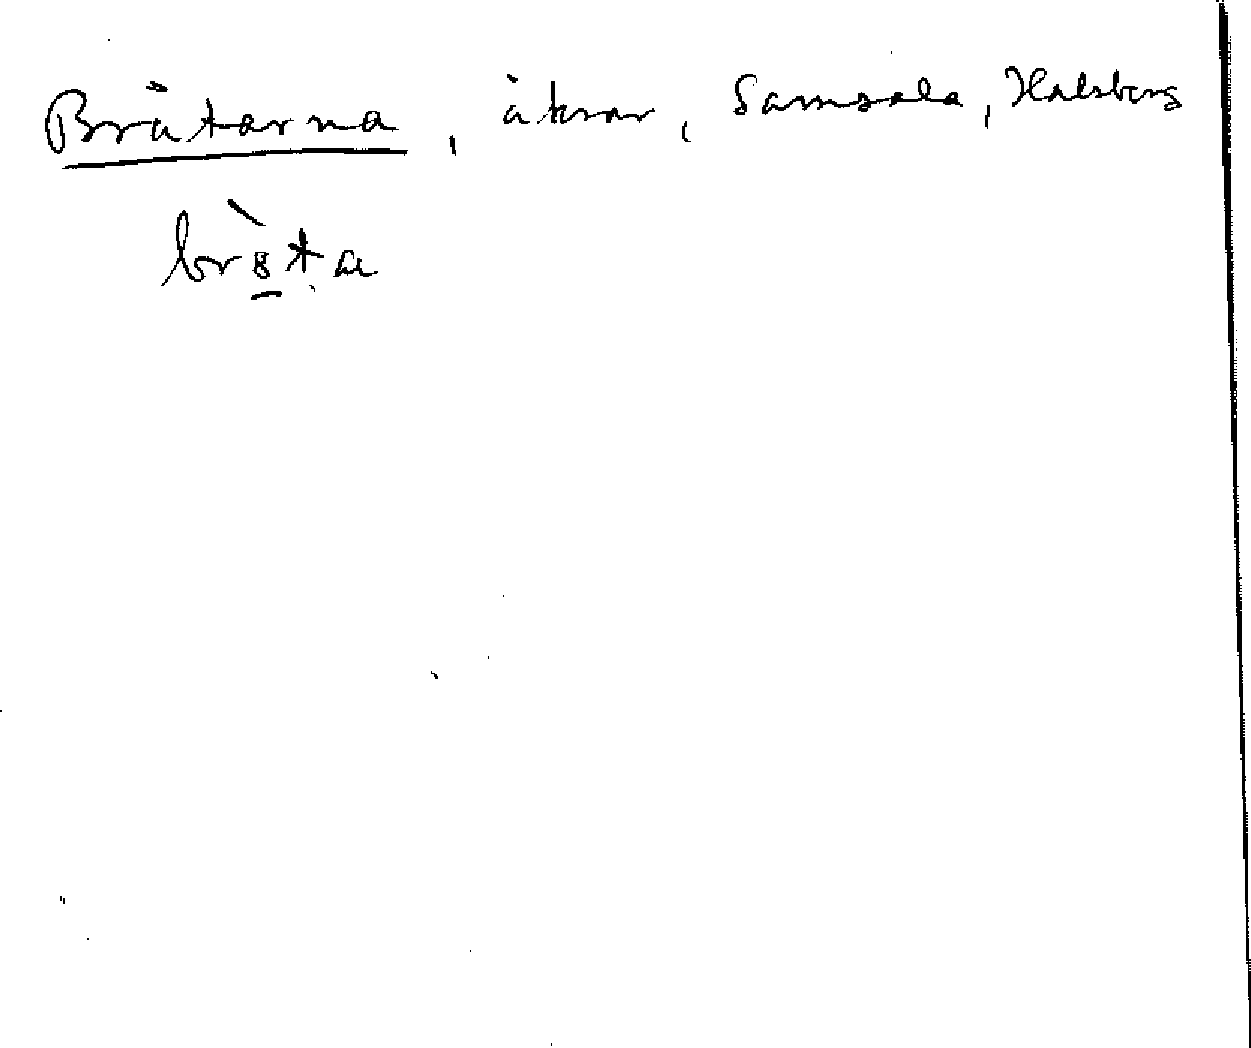 Bråtarna, åkrar, Samsala, Halsberg
br8ta